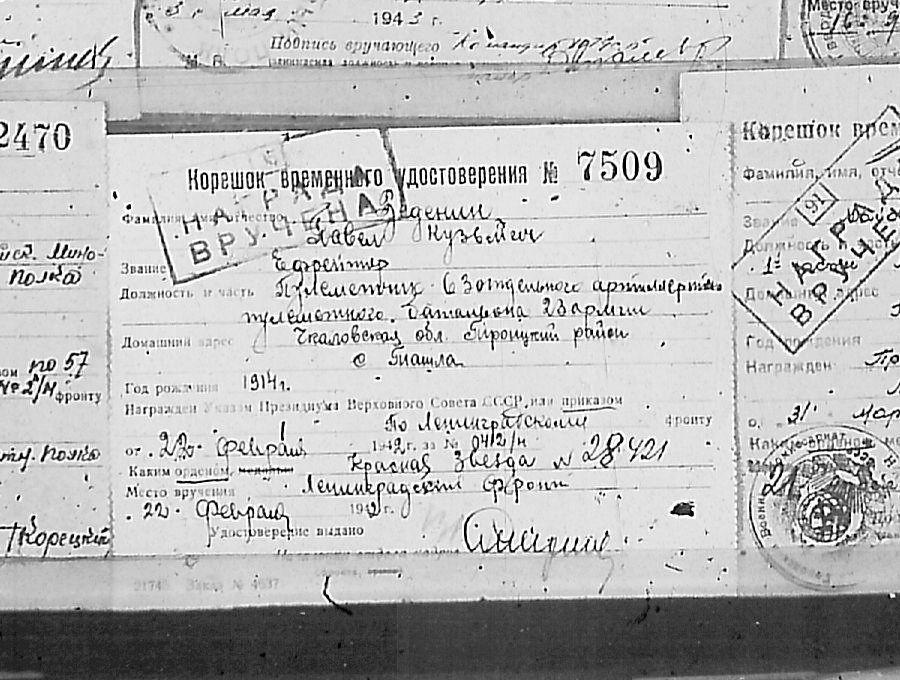 3 мая 1943 г.
Подпись вручающего
Место вруч
16
2470
Корешок временного удостоверения № 7509
НАГРАДА
ВРУЧЕНА
Фамилия, имя, отчество Веденин
Павел Кузьмич
Звание Ефрейтор
Должность и часть Пулеметчик 63 отдельного артиллерийско
пулеметного батальона 23 армии
Домашний адрес Чкаловская обл. район
с.
Год рождения 1914 г.
Награжден Указом Президиума Верховного Совета СССР, или приказом
По Ленинградскому фронту
от 22 февраля 1942 г. за № 0412/н
Каким орденом, медалью Красная Звезда № 28421
Место вручения Ленинградский фронт
22 февраля 1942 г.
Удостоверение выдано
21745 Заказ № 4637
полка
по 57
№ 2/н фронту
полка
Корецкий
Корешок врем
Фамилия, имя, отче
Звание
Должность и часть
Домашний адрес
Год рождения
Награжден
о. 31 мар
91
НАГРАД
ВРУЧЕ